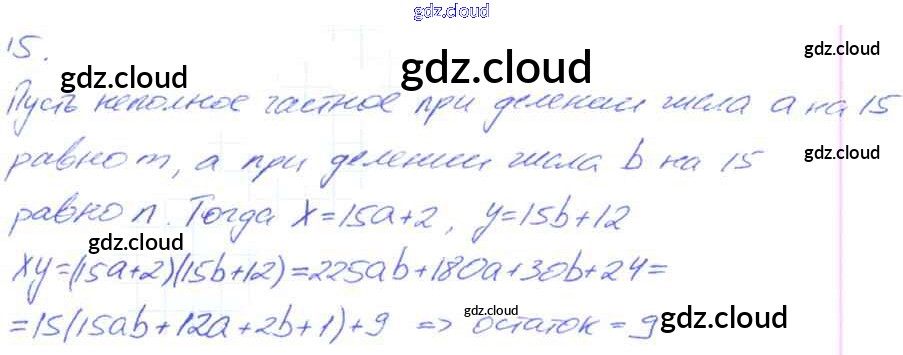 gdz.cloud
15.
gdz.cloud gdz.cloud gdz.cloud
Пусть неполное частное при делении числа a на 15
равно m, а при делении числа b на 15 gdz.cloud
равно n. Тогда x=15a+2, y=15b+12
gdz.cloud
xy=(15a+2)(15b+12)=225ab+180a+30b+24=
=15(15ab+12a+2b+1)+9 => остаток = 9
gdz.cloud gdz.cloud